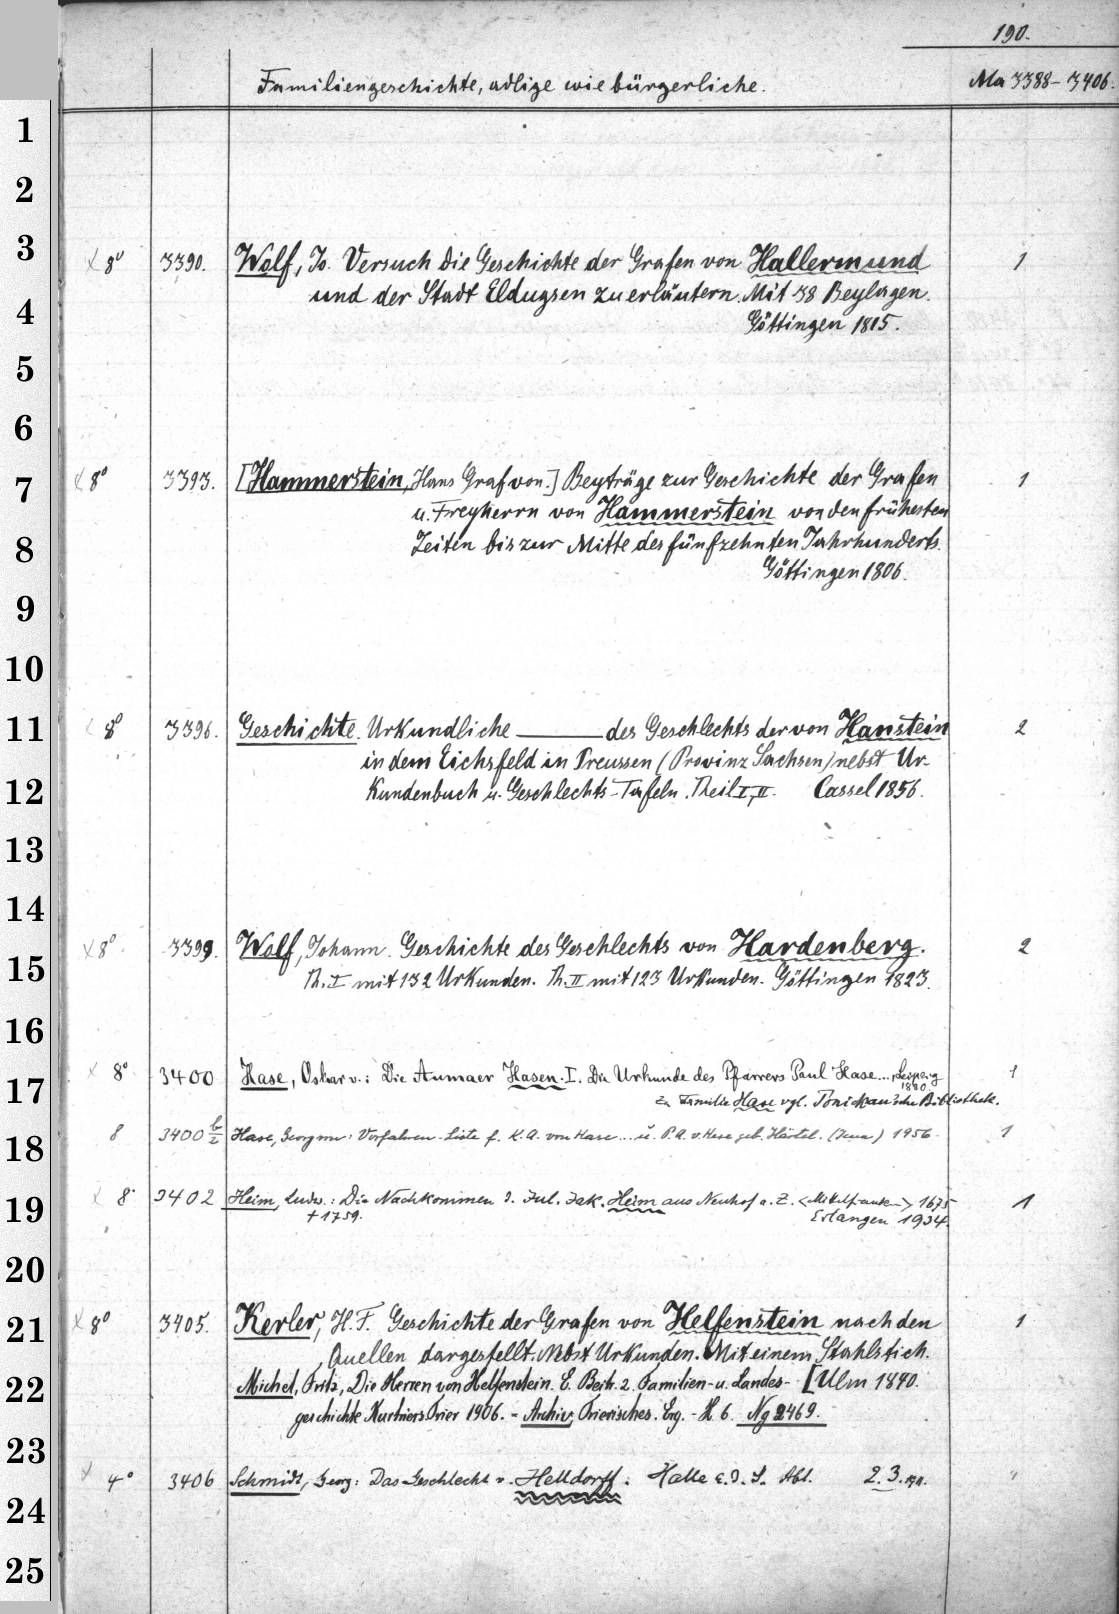 190.
Familiengeschichte, adlige wie bürgerliche. Ma 3388-3406.
1
2
3
4
5
6
7
8
9
10
11
12
13
14
15
16
17
18
19
20
21
22
23
24
25
x 8° 3390. Wolf, Jo. Versuch die Geschichte der Grafen von Hallermund 1
und der Stadt Eldagsen zu erläutern. Mit 38 Beylagen.
Göttingen 1815.
x 8° 3393. [Hammerstein, Hans Graf von.] Beyträge zur Geschichte der Grafen 1
u. Freyherrn von Hammerstein von den frühesten
Zeiten bis zur Mitte des fünfzehnten Jahrhunderts.
Göttingen 1806.
x 8° 3396. Geschichte. Urkundliche ——— des Geschlechts der von Hanstein 2
in dem Eichsfeld in Preussen (Provinz Sachsen) nebst Ur-
kundenbuch u. Geschlechts-Tafeln. Theil I, II. Cassel 1856.
x 8° 3399. Wolf, Johann. Geschichte des Geschlechts von Hardenberg. 2
Th. I mit 132 Urkunden. Th. II mit 123 Urkunden. Göttingen 1823.
x 8° 3400 Hase, Oskar v.: Die Aumaer Hasen. I. Die Urkunde des Pfarrers Paul Hase..., Leipzig 1
Familie Hase vgl. Bibliothek.
8 3400 b/2 Hase, Georg von: Vorfahren-Liste f. K. A. von Hase... u. P. A. v. Hase geb. Härtel. (Jena) 1956. 1
x 8° 3402 Heim, Ludw.: Die Nachkommen d. Jul. Jak. Heim aus Neuhof a. Z. <Mittelfranken> 1675 1
† 1759. Erlangen 1934.
x 8° 3405. Kerler, H. F. Geschichte der Grafen von Helfenstein nach den 1
Quellen dargestellt. Nebst Urkunden. Mit einem Stahlstich.
[Ulm 1840.
Michel, Fritz, Die Herren von Helfenstein. E. Beitr. z. Familien- u. Landes-
geschichte Kurtriers. Trier 1906. = Archiv, Trierisches. Erg.-H 6. Ng 2469.
x 4° 3406 Schmidt, Georg: Das Geschlecht v. Helldorff. Halle a. d. S. Abt. 2. 3. "